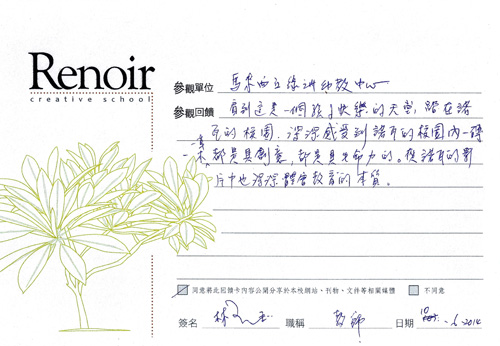 Renoir
creative school
參觀單位 馬來西亞綠洲幼教中心
參觀回饋 看到這是一個孩子快樂的天堂，踏在諾
瓦的校園，深深感受到諾瓦的校園內一磚
一木都是具創意，都是具生命力的。從諾瓦的影
片中也深深體會教育的本質。
同意將此回饋卡內容公開分享於本校網站、刊物、文件等相關媒體 不同意
簽名 林 職稱 教師 日期 6 2014